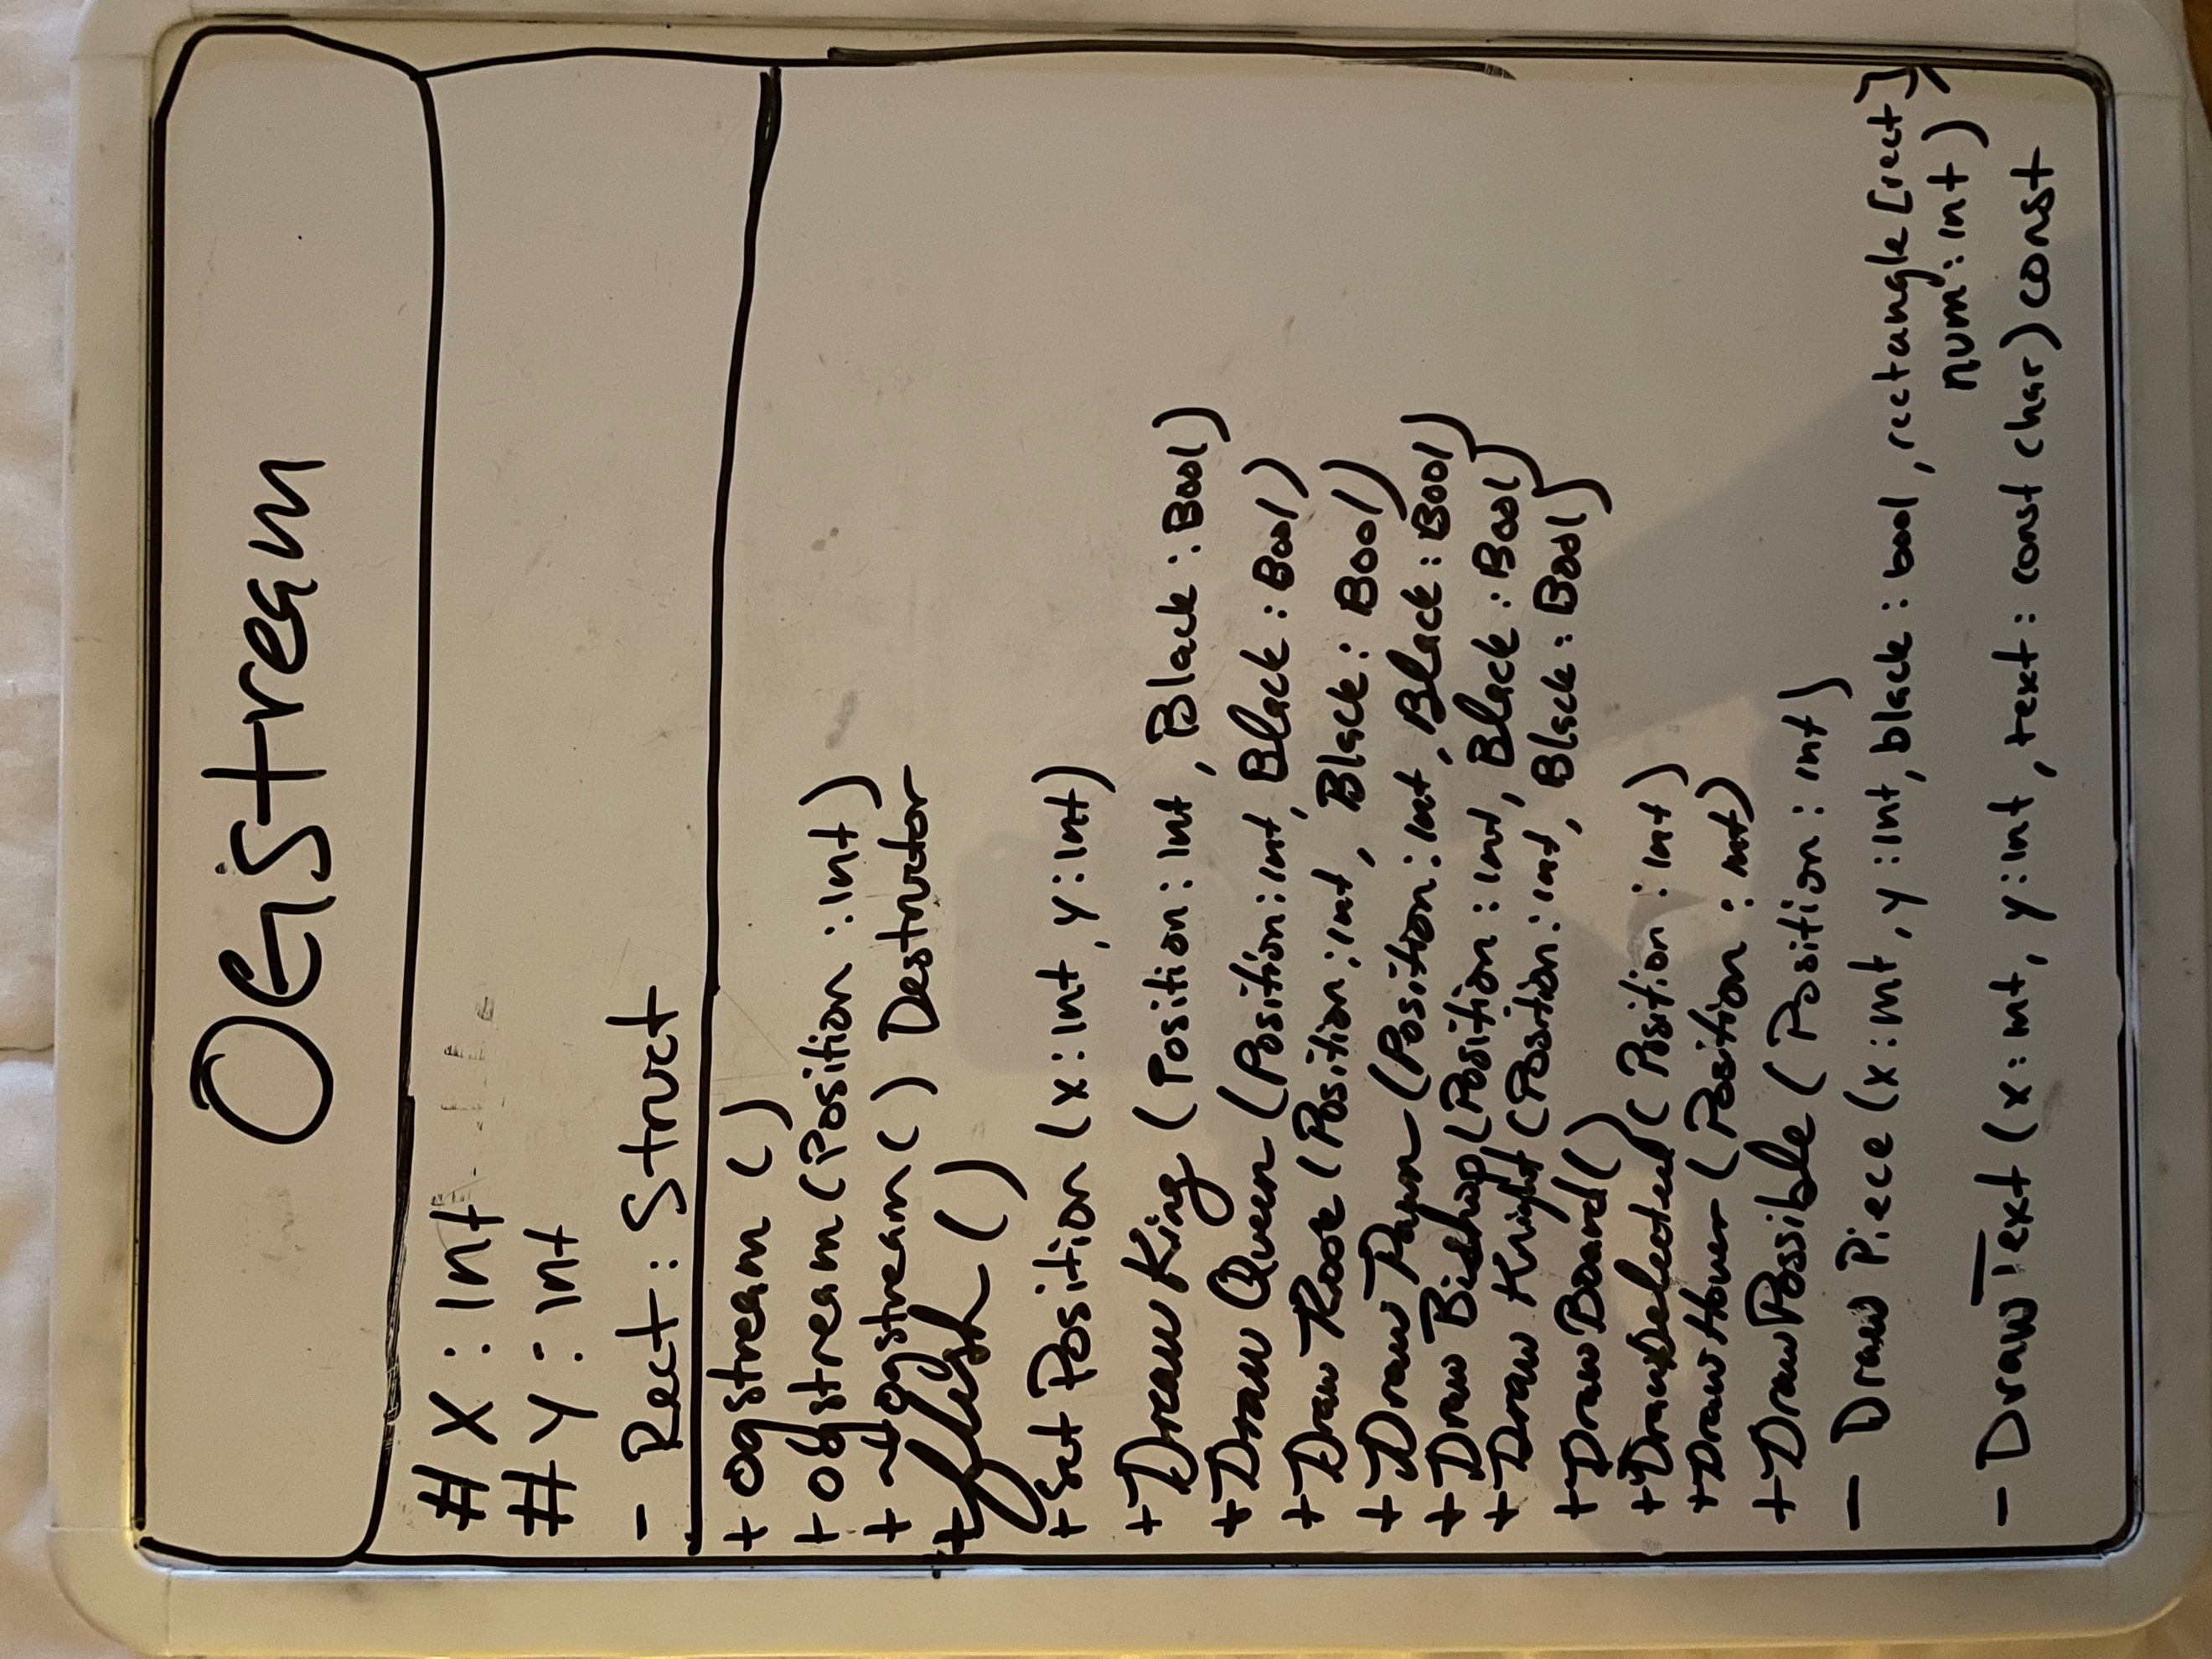 OGstream
# X : Int
# Y : Int
- Rect : Struct
+ ogstream ()
+ ogstream (Position : Int)
+ ~ogstream () Destructor
+ flush ()
+ Set Position (x : Int, y : Int)
+ Draw King (Position : Int, Black : Bool)
+ Draw Queen (Position : Int, Black : Bool)
+ Draw Rook (Position : int, Black : Bool)
+ Draw Pawn (Position : Int, Black : Bool)
+ Draw Bishop (Position : int, Black : Bool)
+ Draw Knight (Position : int, Black : Bool)
+ Draw Board ()
+ DrawSelected (Position : int)
+ Draw Hover (Position : int)
+ Draw Possible (Position : int)
- Draw Piece (x : int, y : int, black : bool, rectangle [rect]
num : int)
- Draw Text (x : int, y : int, text : const char) const